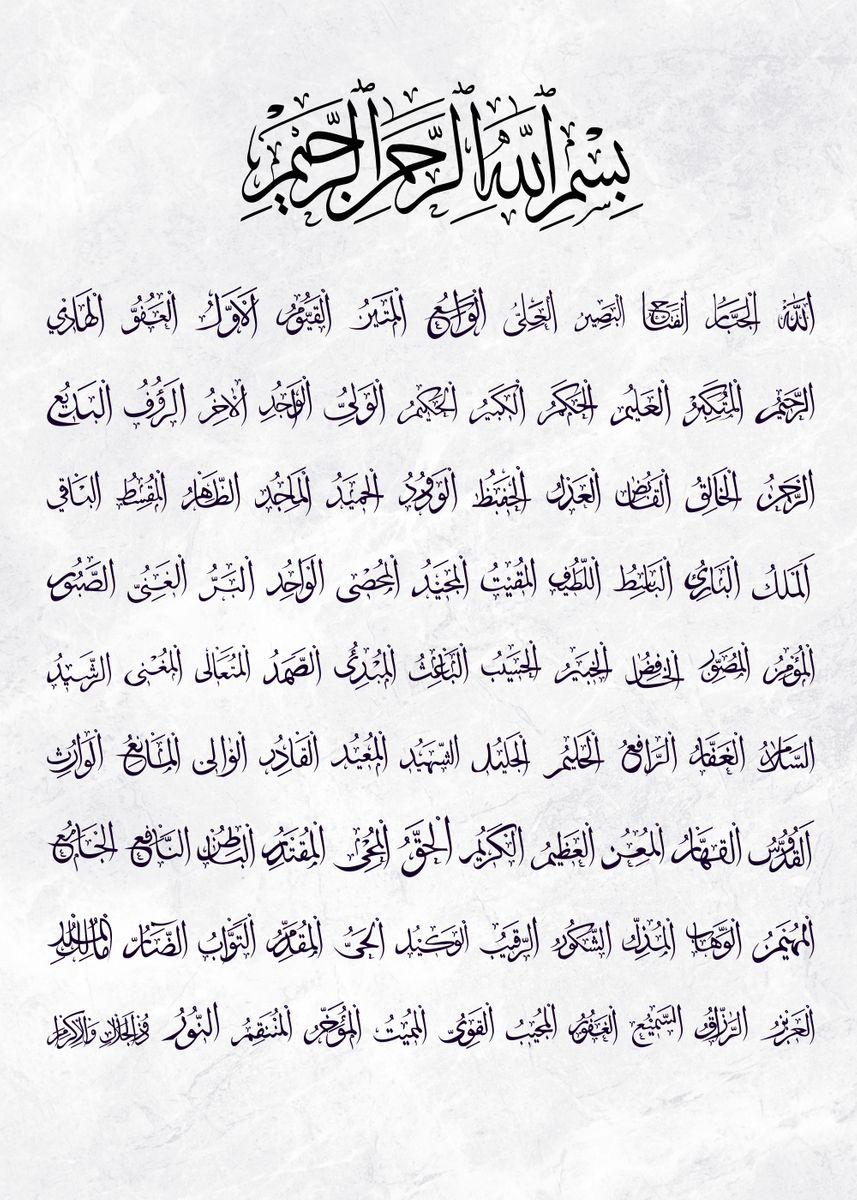 بِسْمِ ٱللَّهِ ٱلرَّحْمَٰنِ ٱلرَّحِيمِ
ٱللَّهُ الْجَبَّارُ الْفَتَّاحُ الْبَصِيرُ الْعَلِيُّ الْوَاسِعُ الْمَتِينُ الْقَيُّومُ الْأَوَّلُ الْعَفُوُّ الْهَادِي
الرَّحِيمُ الْمُتَكَبِّرُ الْعَلِيمُ الْحَكَمُ الْكَبِيرُ الْحَكِيمُ الْوَلِيُّ الْوَاجِدُ الْآخِرُ الرَّؤُفُ الْبَدِيعُ
الرَّحْمَنُ الْخَالِقُ الْقَابِضُ الْعَدْلُ الْحَفِيظُ الْوَدُودُ الْحَمِيدُ الْمَاجِدُ الظَّاهِرُ الْمُقْسِطُ الْبَاقِي
الْمَلِكُ الْبَارِئُ الْبَاسِطُ اللَّطِيفُ الْمُقِيتُ الْمَجِيدُ الْمُحْصِى الْوَاحِدُ الْبَرُّ الْغَنِىُّ الصَّبُورُ
الْمُؤْمِنُ الْمُصَوِّرُ الْخَافِضُ الْخَبِيرُ الْحَسِيبُ الْبَاعِثُ الْمُبْدِئُ الصَّمَدُ الْمُتَعَالِى الْمُغْنِى الرَّشِيدُ
السَّلَامُ الْغَفَّارُ الرَّافِعُ الْحَلِيمُ الْجَلِيلُ الشَّهِيدُ الْمُعِيدُ الْقَادِرُ الْوَالِى الْمَانِعُ الْوَارِثُ
الْقُدُّوسُ الْقَهَّارُ الْمُعِزُّ الْعَظِيمُ الْكَرِيمُ الْحَقُّ الْمُحْيِى الْمُقْتَدِرُ الْبَاطِنُ النَّافِعُ الْجَامِعُ
الْمُهَيْمِنُ الْوَهَّابُ الْمُذِلُّ الشَّكُورُ الرَّقِيبُ الْوَكِيلُ الْحَىُّ الْمُقَدِّمُ التَّوَّابُ الضَّارُّ مَالِكُ الْمُلْكِ
الْعَزِيزُ الرَّزَّاقُ السَّمِيعُ الْغَفُورُ الْمُجِيبُ الْقَوِىُّ الْمُمِيتُ الْمُؤَخِّرُ الْمُنْتَقِمُ النُّورُ ذُو الْجَلَالِ وَالْإِكْرَامِ